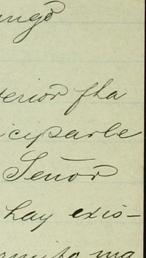 ungo
terior fha
iciparle
Señor
hay exis-